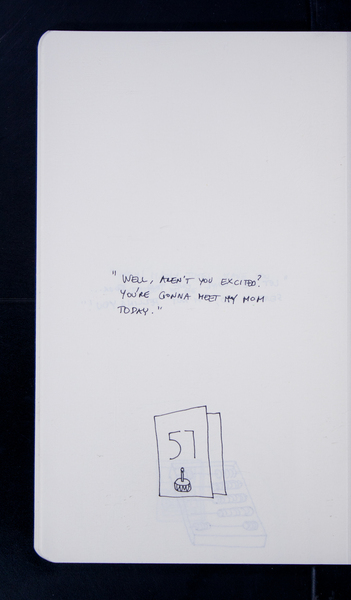 "WELL, AREN'T YOU EXCITED?
YOU'RE GONNA MEET MY MOM
TODAY."
57